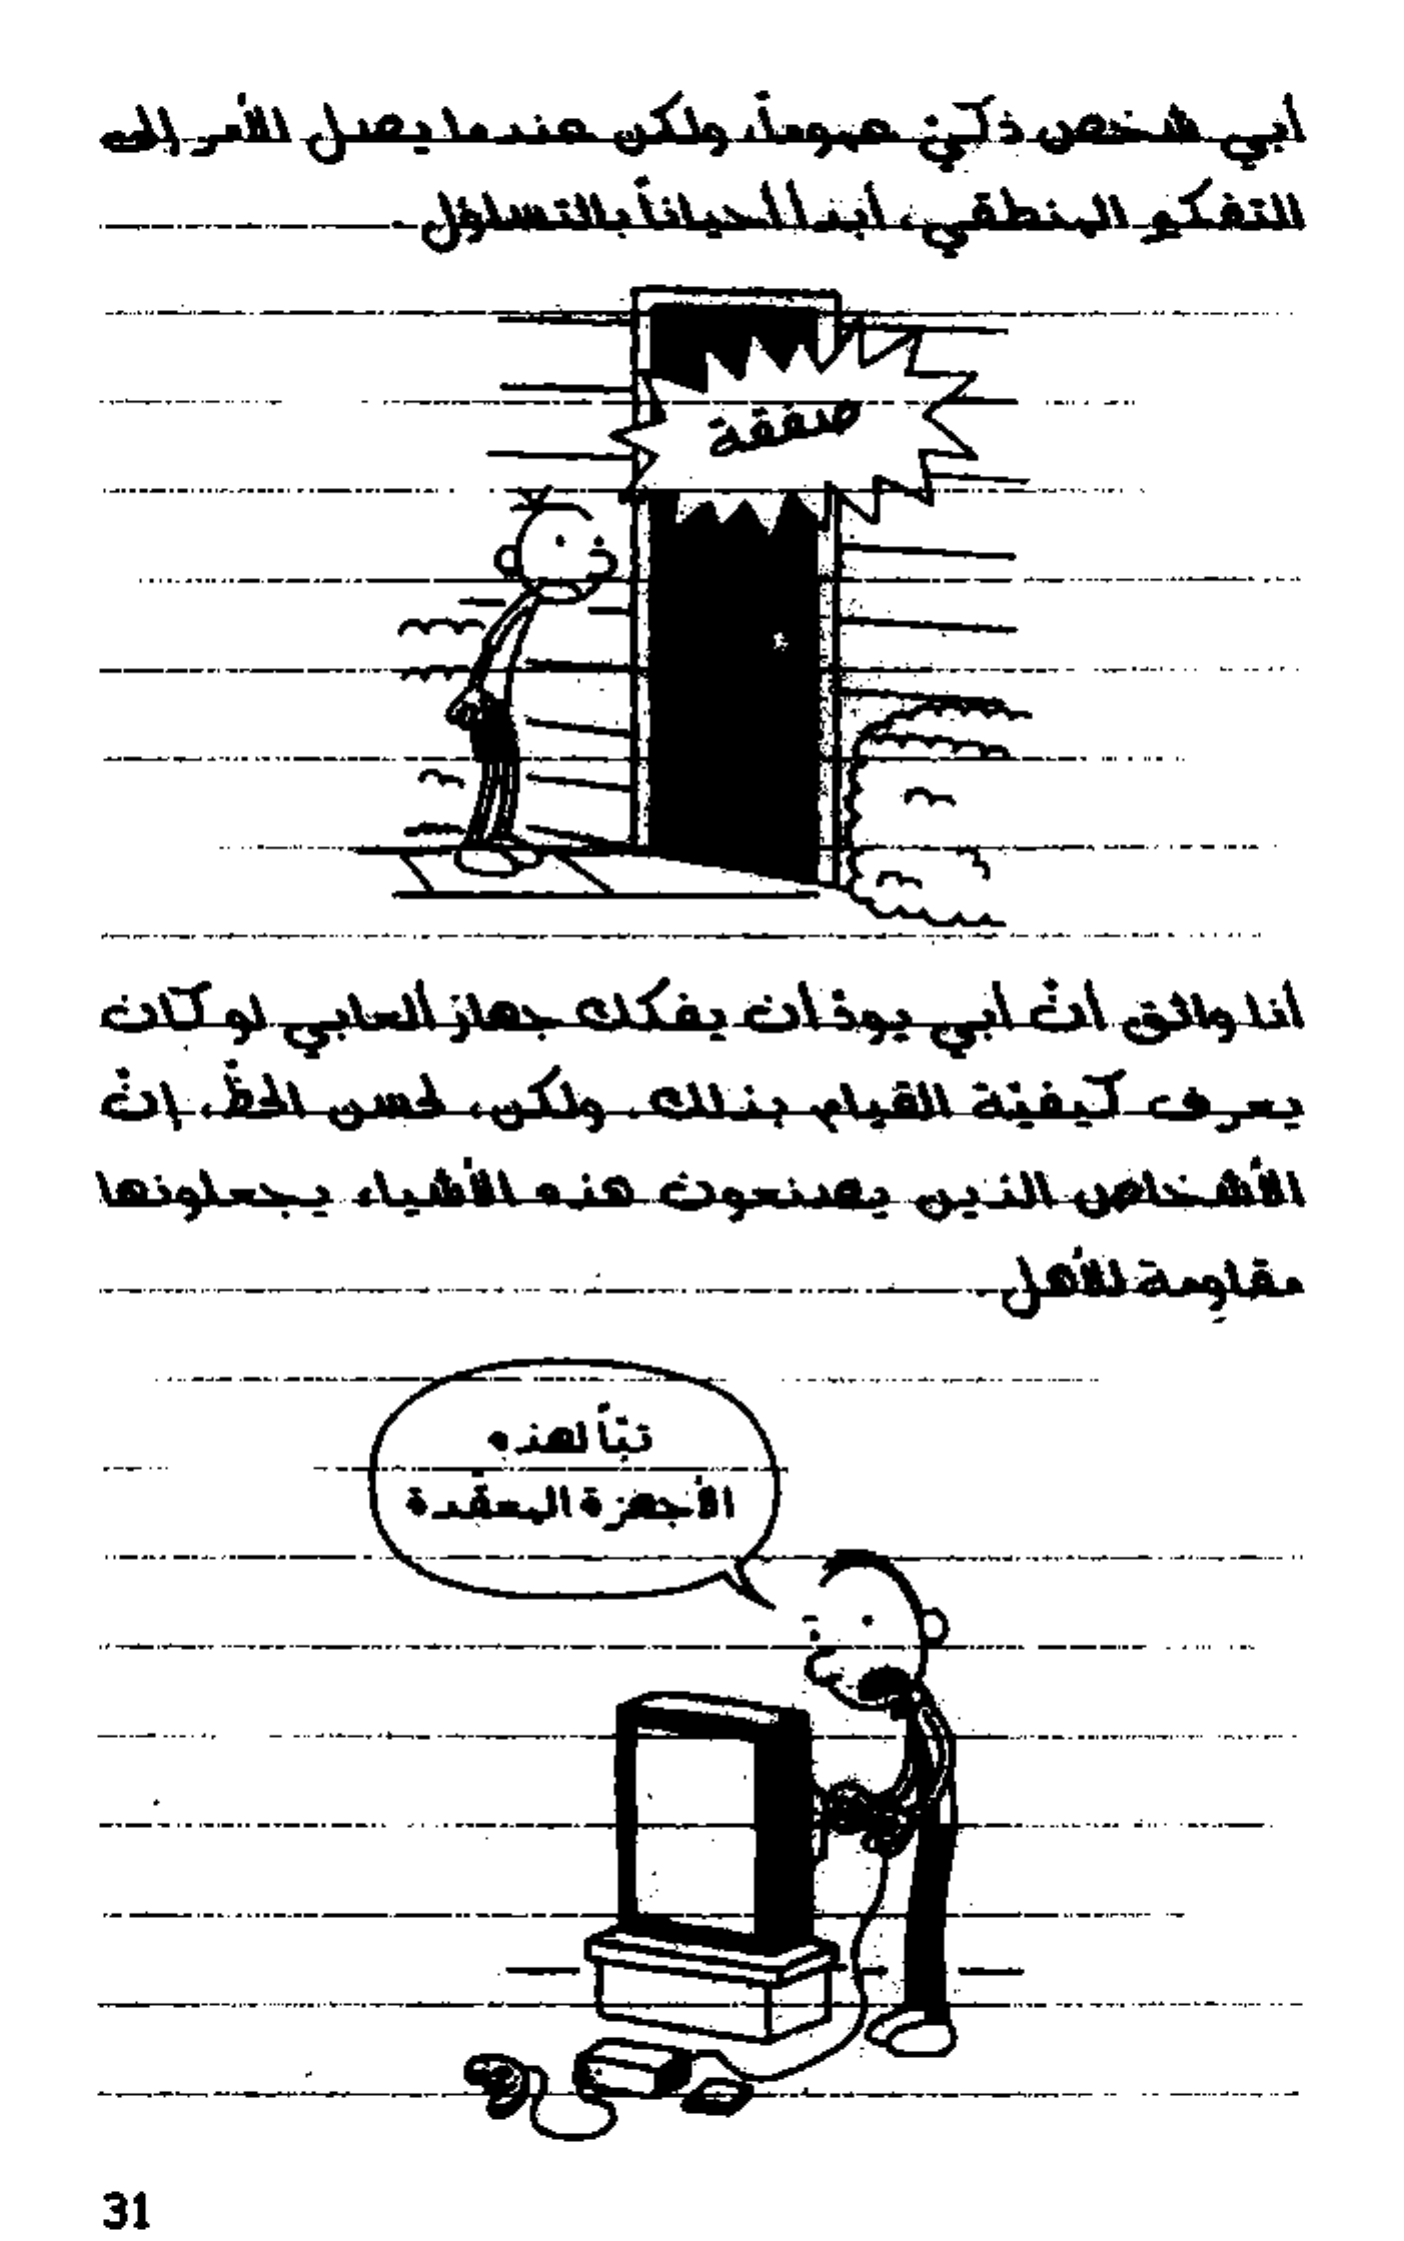 أبي شخص ذكيّ عموماً، ولكن عندما يصل الأمر إلى
التفكير المنطقي، أبدأ أحياناً بالتساؤل.
صفقة
أنا واثق أنّ أبي يودّ أن يفكك جهاز ألعابي لو كان
يعرف كيفيّة القيام بذلك. ولكن، لحسن الحظّ، إنّ
الأشخاص الذين يصنعون هذه الأشياء يجعلونها
مقاوِمة للأهل.
تبّاً لهذه
الأجهزة المعقّدة
31